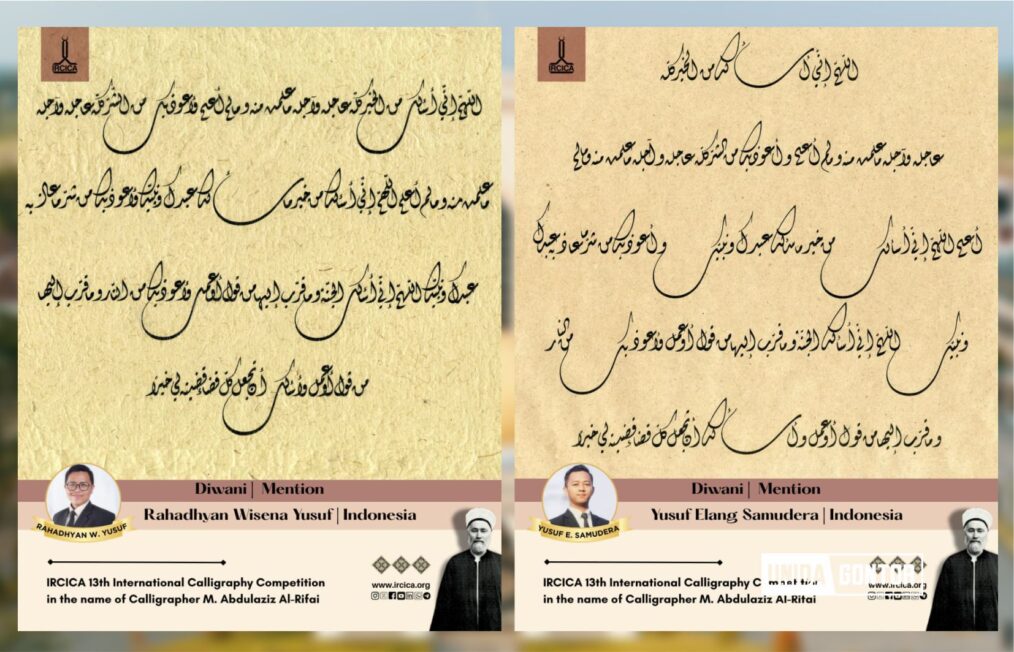 IRCICA
اللهم إني أسألك من الخير كله عاجله وآجله ما علمت منه وما لم أعلم وأعوذ بك من الشر كله عاجله وآجله
ما علمت منه وما لم أعلم اللهم إني أسألك من خير ما سألك عبدك ونبيك وأعوذ بك من شر ما عاذ به
عبدك ونبيك اللهم إني أسألك الجنة وما قرب إليها من قول أو عمل وأعوذ بك من النار وما قرب إليها
من قول أو عمل وأسألك أن تجعل كل قضاء قضيته لي خيرا
Diwani | Mention
Rahadhyan Wisena Yusuf | Indonesia
RAHADHYAN W. YUSUF
www.ircica.org
IRCICA 13th International Calligraphy Competition
in the name of Calligrapher M. Abdulaziz Al-Rifai
IRCICA
اللهم إني أسألك من الخير كله
عاجله وآجله ما علمت منه وما لم أعلم وأعوذ بك من الشر كله عاجله وآجله ما علمت منه وما لم
أعلم اللهم إني أسألك من خير ما سألك عبدك ونبيك وأعوذ بك من شر ما عاذ به عبدك
ونبيك اللهم إني أسألك الجنة وما قرب إليها من قول أو عمل وأعوذ بك من النار
وما قرب إليها من قول أو عمل وأسألك أن تجعل كل قضاء قضيته لي خيرا
Diwani | Mention
Yusuf Elang Samudera | Indonesia
YUSUF E. SAMUDERA
UNIDA GONTOR
IRCICA 13th International Calligraphy Competition
in the name of Calligrapher M. Abdulaziz Al-Rifai